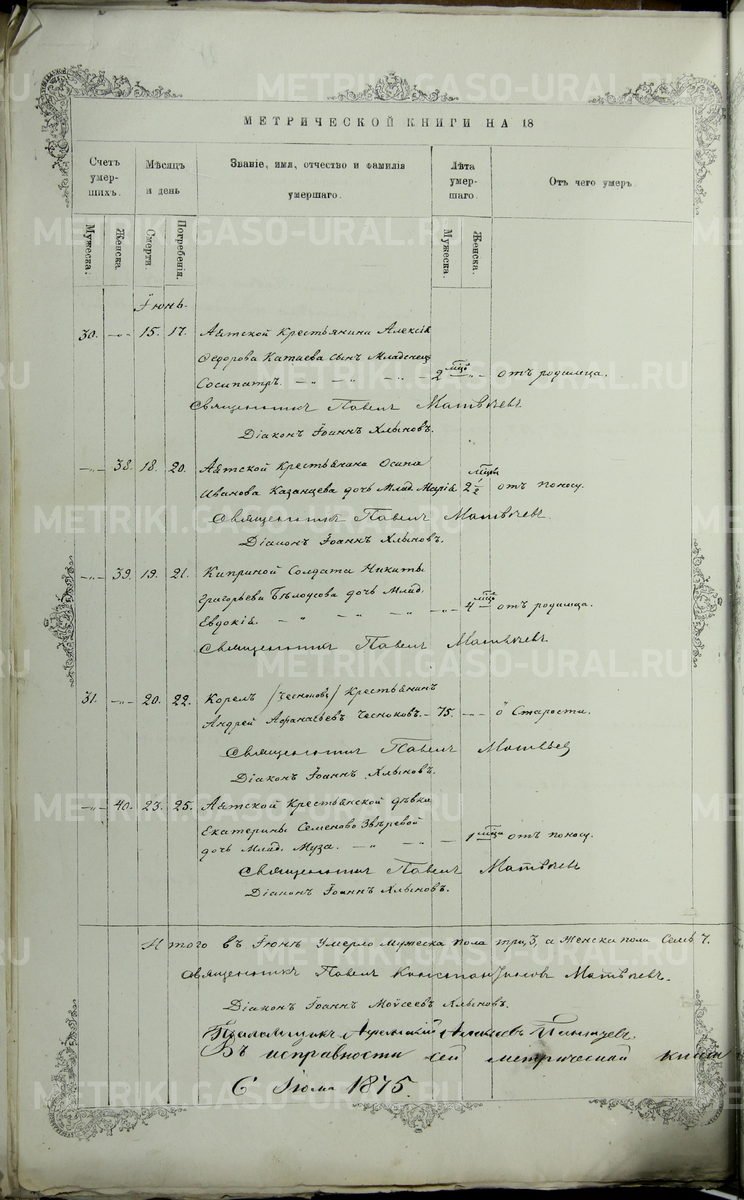 МЕТРИЧЕСКОЙ КНИГИ НА 18
Счетъ умер-шихъ.
Мѣсяцъ и день
Званіе, имя, отчество и фамилія умершаго.
Лѣта умер-шаго.
Отъ чего умеръ.
Мужеска.
Женска.
Смерти
Погребенія.
Мужеска.
Женска.
Іюнь
30. -„- 15. 17. Аятской Крестьянина Алексія
Ѳедорова Катаева сынъ Младенецъ
Сосипатръ. -„- -„- -„- 2 мцѣ -„- отъ родимца.
Священникъ Павелъ Матвѣевъ.
Діаконъ Іоаннъ Хлыновъ.
-„- 38. 18. 20. Аятской Крестьянина Осипа
Иванова Казанцева дочь Млад. Марія 2½ мцы отъ поносу.
Священникъ Павелъ Матвѣевъ.
Діаконъ Іоаннъ Хлыновъ.
-„- 39. 19. 21. Киприной Солдата Никиты
Григорьева Бѣлоусова дочь Млад.
Евдокія. -„- -„- -„- 4 мца отъ родимца.
Священникъ Павелъ Матвѣевъ
31. -„- 20. 22. Корелъ /Чесноковъ/ Крестьянинъ
Андрей Афанасьевъ Чесноковъ. - 75. -„- Старости.
Священникъ Павелъ Матвѣев
Діаконъ Іоаннъ Хлыновъ.
-„- 40. 23. 25. Аятской Крестьянской дѣвки
Екатерины Семеново Звѣревой
дочь Млад. Муза. -„- -„- 1 мца отъ поносу.
Священникъ Павелъ Матвѣевъ
Діаконъ Іоаннъ Хлыновъ.
Итого въ Іюнѣ Умерло Мужеска пола три, 3, а Женска пола Семь 7.
Священникъ Павелъ Константиновъ Матвѣевъ.
Діаконъ Іоаннъ Моѵсеевъ Хлыновъ.
Псаломщикъ
Въ исправности сей метрической книги
6 Іюля 1875.
METRIKI.GASO-URAL.RU